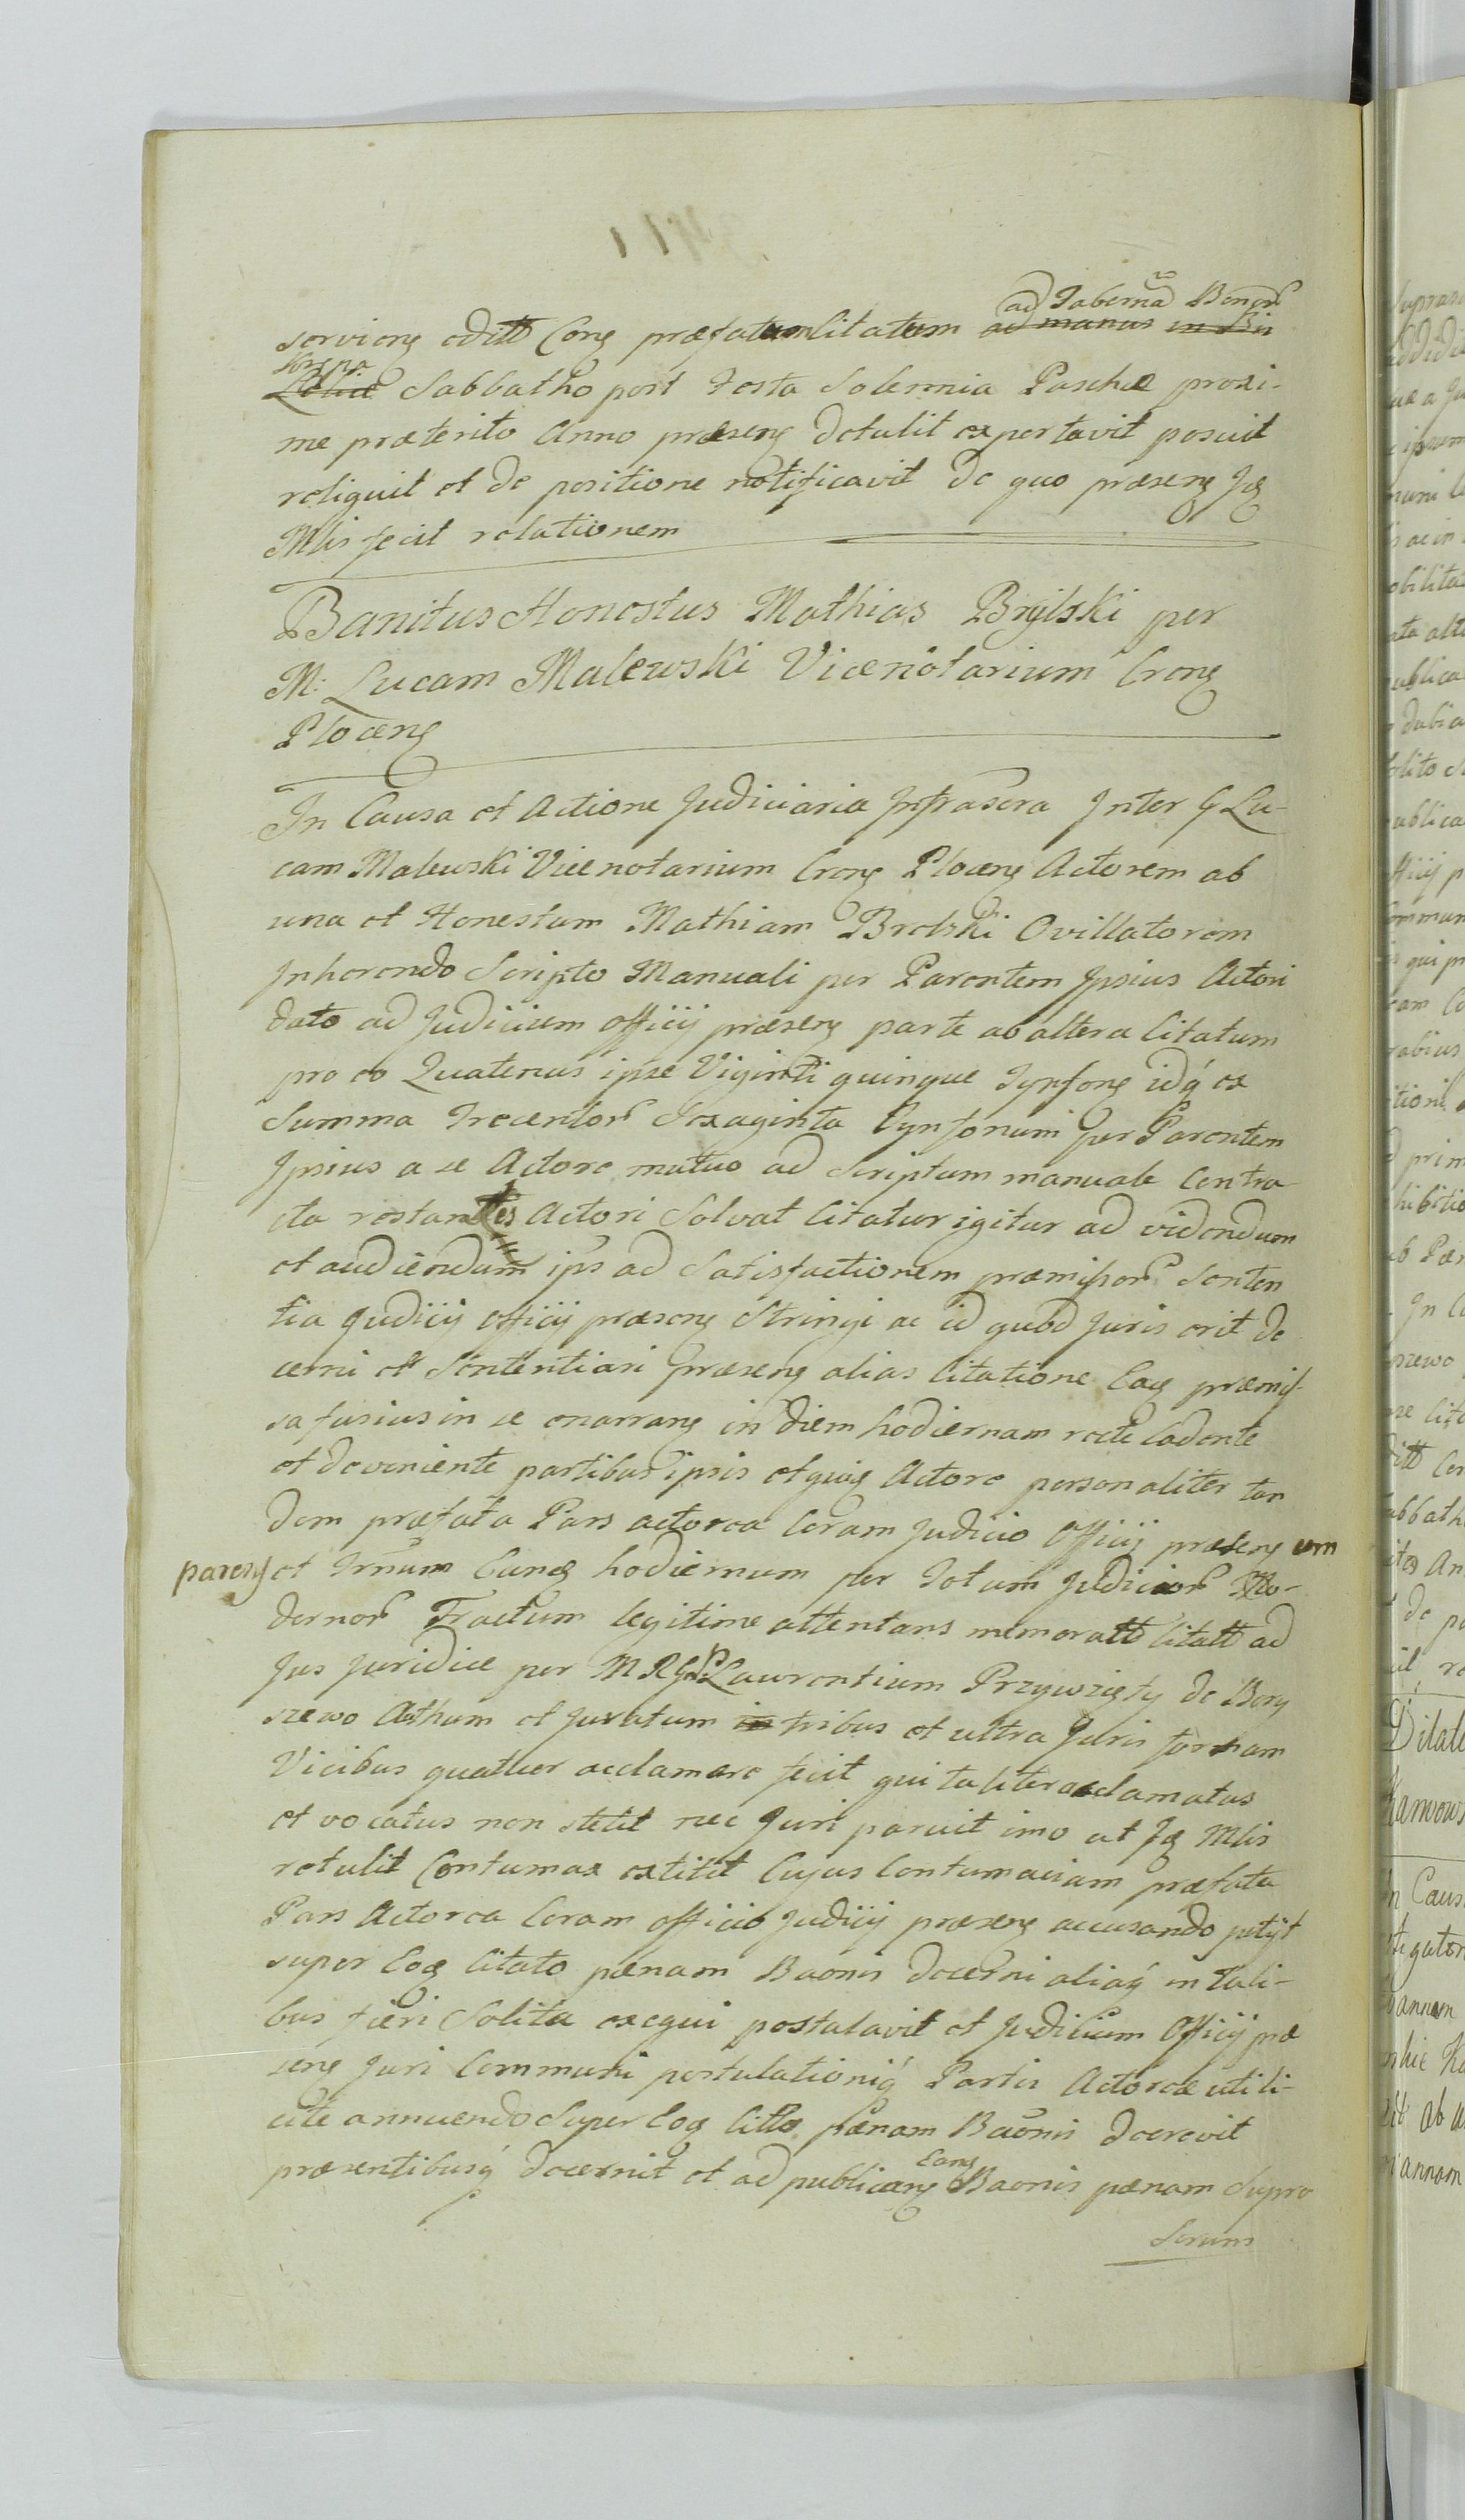 ad Taberna Bonor
serviens editt Cong præfatum litatum ad manus in Bin
Sabbatho post Festa Solemnia Paschæ proxi-
me præterito Anno præseng detulit exportavit posuit
reliquit et de positione notificavit de quo præseng Jg
Mlis fecit relationem
Banitus Honestus Mathias Brylski per
M: Lucam Malewski Vicenotarium Crong
Ploceng
In Causa et Actione Judiciaria Infrascra Inter G Lu-
cam Malewski Vicenotarium Crong Ploceng Actorem ab
una et Honestum Mathiam Brolski Ovillatorem
Inherendo Scripto Manuali per Parentem Ipsius Actori
dato ad Judicium Officij præseng parte ab altera Citatum
pro eo Quatenus ipse Viginti quinque Tynfong idq ex
Summa Trecentor Sexaginta Tynfonum per Parentem
Ipsius a se Actore mutuo ad Scriptum manuale Contra
cta restantes Actori Solvat Citatur igitur ad videndum
et audiendum ips ad Satisfactionem præmissor Senten
tia Judicij Officij præseng Stringi ac id quod Juris erit de
cerni et Sententiari præseng alias Citatione Eag præmis-
sa fusius in se enarrang in diem hodiernam recte Cadente
et deveniente partibus ipsis et quig Actore personaliter tan
dem præfata Pars actorea Coram Judicio Officij præseng um
pareng et Trnum Eung hodiernum per Totum Judicior Mo-
dernor Tractum legitime attentans memoratt Citatt ad
Jus Juridice per M R G P Laurentium Przywzięty de Bory
szewo Acthum et Juratum in tribus et ultra Juris formam
Vicibus quatuor acclamare fecit qui taliter acclamatus
et vocatus non stetit nec Juri paruit imo ut Jg Mlis
retulit Contumax extitit Cujus Contumaciam præfata
Pars Actorea Coram officio Judicij præseng accusando petijt
super Eog Citato pænam Baonis decerni aliaq in tali-
bus fieri Solita exequi postulavit et Judicium Officij præ
seng Juri Communi postulationiq Partis Actoreæ utili-
ter annuendo Super Eog Citto pænam Baonis decrevit
Eang
præsentibusq decernit et ad publicang Baonis pænam Supra
Scrum